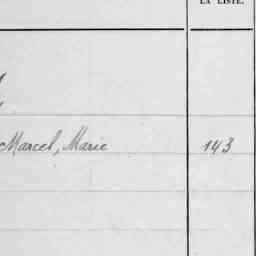 LA LISTE.
Marcel, Marie 143